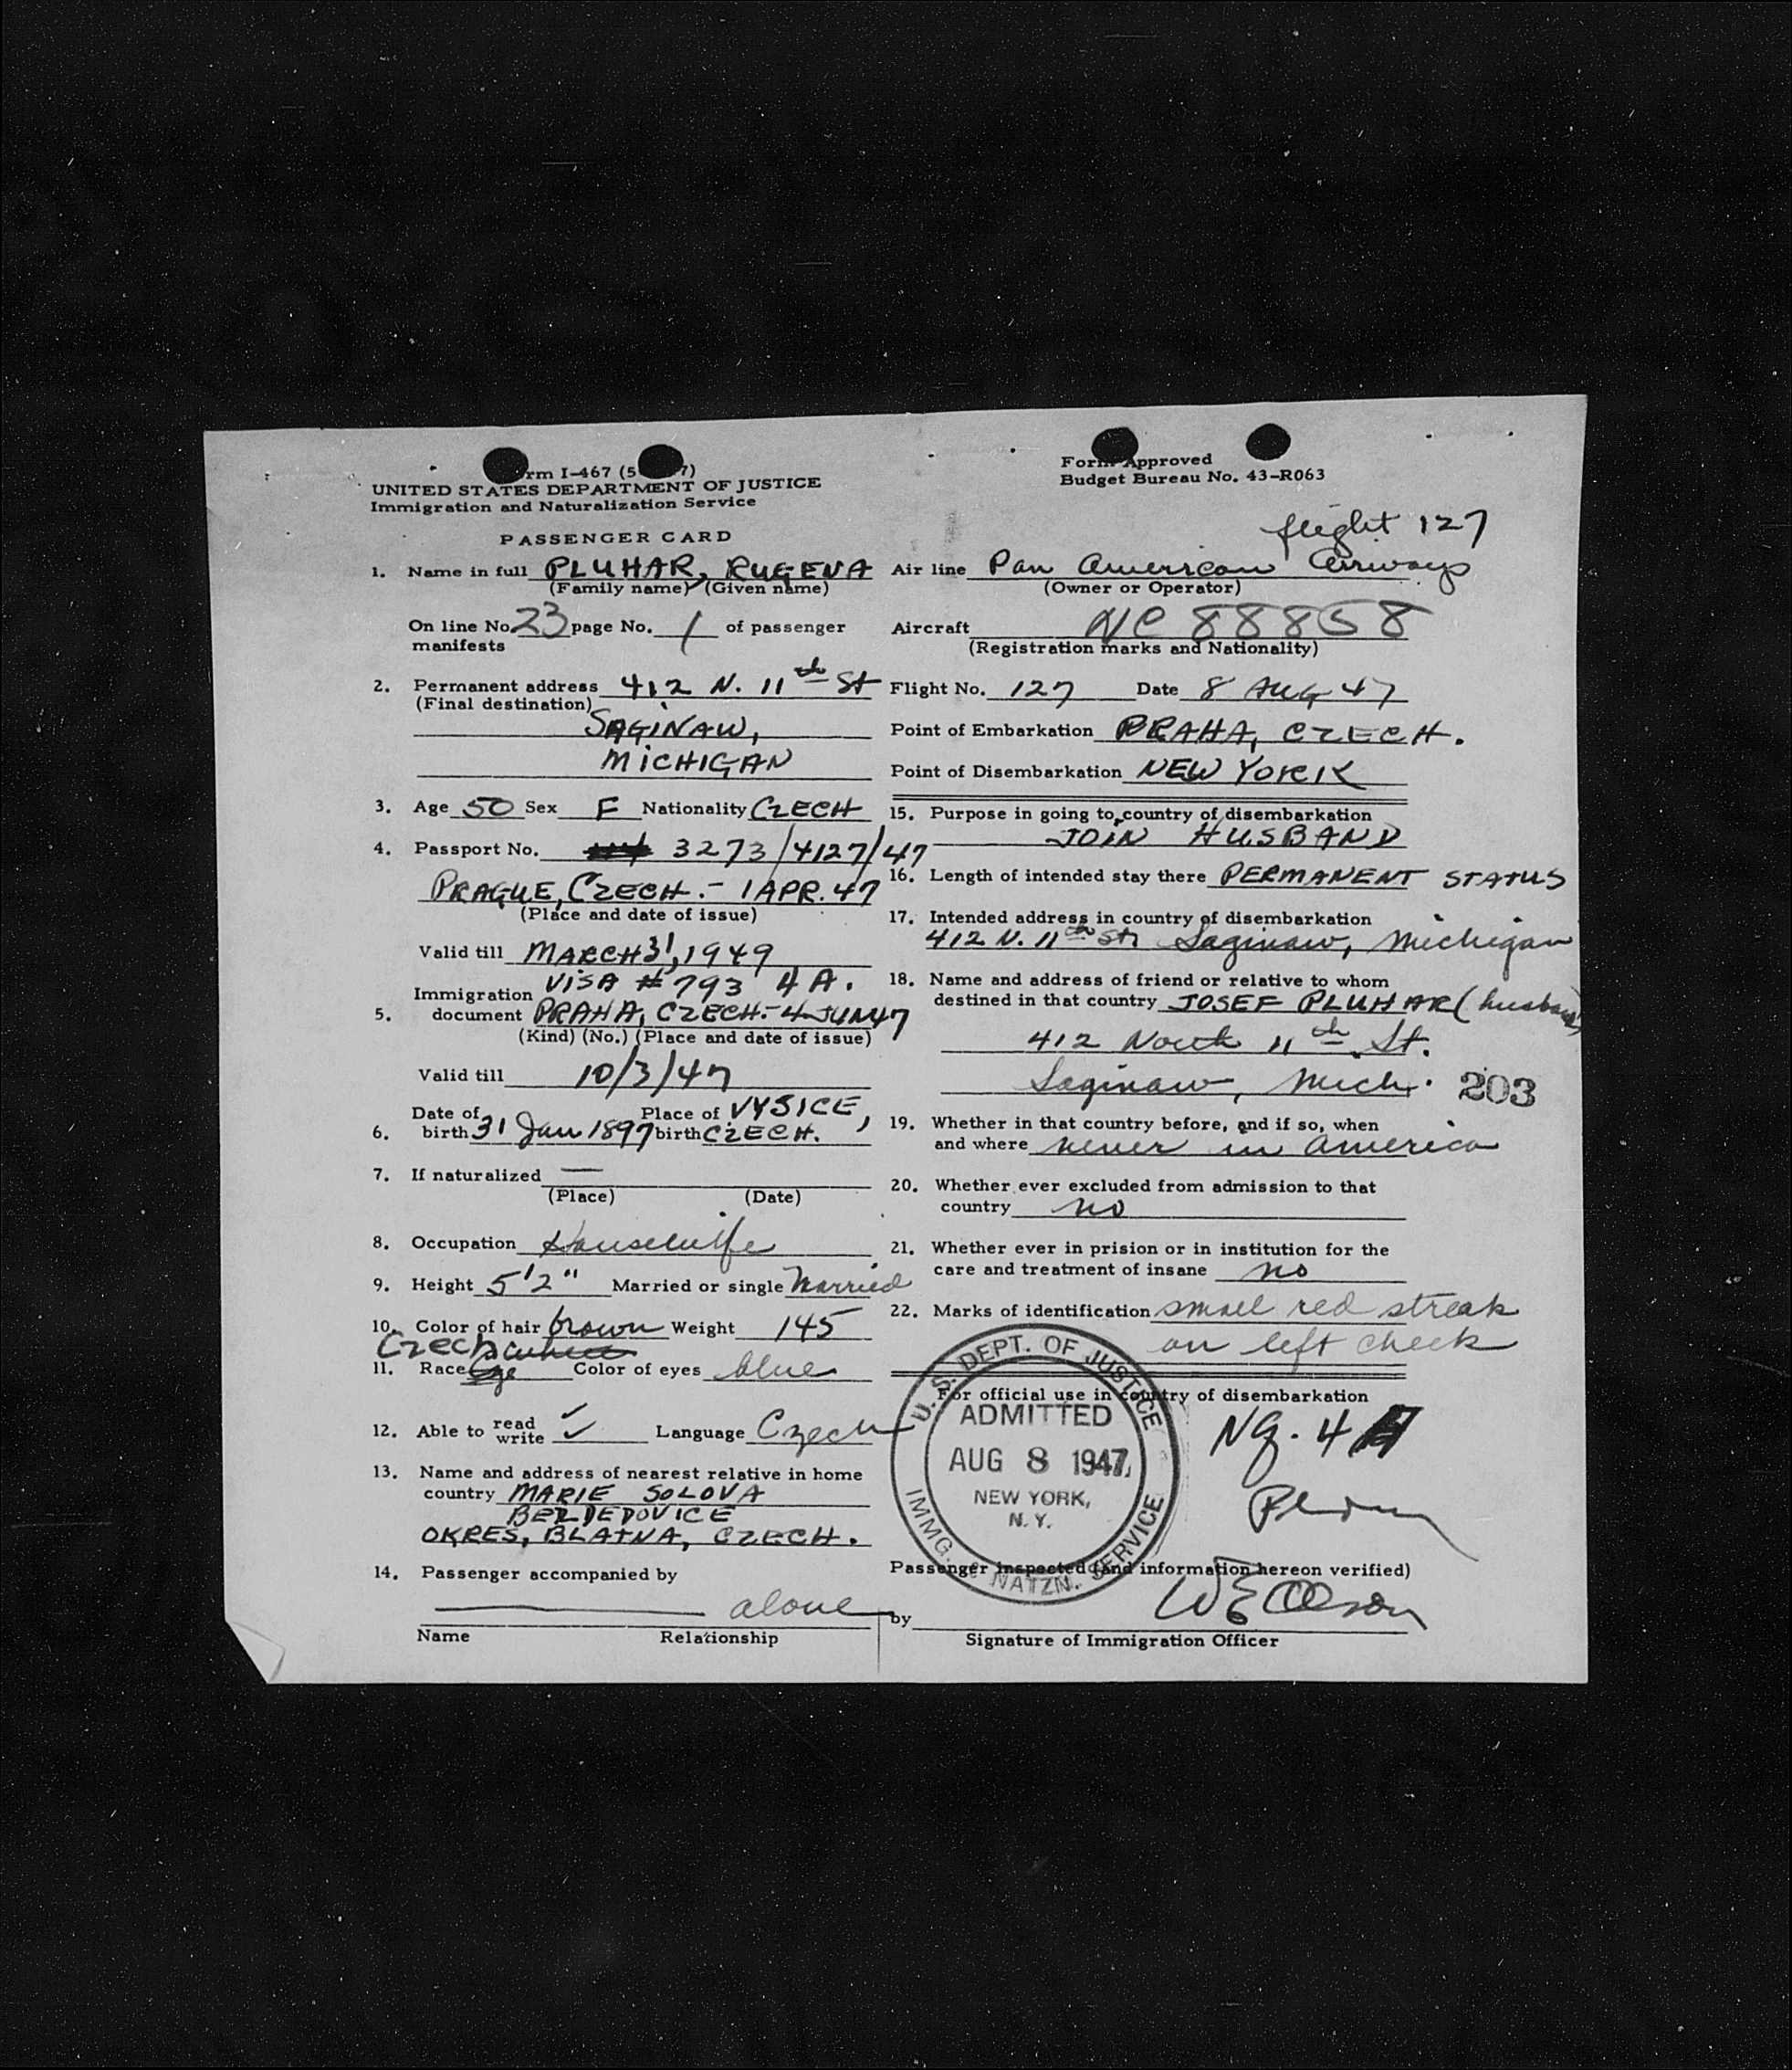 rm I-467 (5 7)
UNITED STATES DEPARTMENT OF JUSTICE
Immigration and Naturalization Service
PASSENGER CARD
Form Approved
Budget Bureau No. 43-R063
flight 127
1. Name in full PLUHAR, RUGENA
(Family name) (Given name)
On line No. 23 page No. 1 of passenger
manifests
2. Permanent address 412 N. 11th St
(Final destination)
SAGINAW,
MICHIGAN
3. Age 50 Sex F Nationality CZECH
4. Passport No. 3273/4127/47
PRAGUE, CZECH. - 1 APR. 47
(Place and date of issue)
Valid till MARCH 31, 1949
VISA # 793 4 A.
Immigration
5. document PRAHA, CZECH. - 4 JUN 47
(Kind) (No.) (Place and date of issue)
Valid till 10/3/47
6. Date of birth 31 Jan 1897 Place of birth VYSICE, CZECH.
7. If naturalized —
(Place) (Date)
8. Occupation Housewife
9. Height 5'2" Married or single Married
10. Color of hair brown Weight 145
Czech
11. Race Color of eyes blue
12. Able to read write ✓ ✓ Language Czech
13. Name and address of nearest relative in home
country MARIE SOLOVA
BEZDEDOVICE
OKRES, BLATNA, CZECH.
14. Passenger accompanied by
alone
Name Relationship
Air line Pan American Airways
(Owner or Operator)
Aircraft NC 88858
(Registration marks and Nationality)
Flight No. 127 Date 8 AUG 47
Point of Embarkation PRAHA, CZECH.
Point of Disembarkation NEW YORK
15. Purpose in going to country of disembarkation
JOIN HUSBAND
16. Length of intended stay there PERMANENT STATUS
17. Intended address in country of disembarkation
412 N. 11th St. Saginaw, Michigan
18. Name and address of friend or relative to whom
destined in that country JOSEF PLUHAR (husband)
412 North 11th St.
Saginaw, Mich. 203
19. Whether in that country before, and if so, when
and where never in America
20. Whether ever excluded from admission to that
country no
21. Whether ever in prision or in institution for the
care and treatment of insane no
22. Marks of identification small red streak
on left cheek
For official use in country of disembarkation
U. S. DEPT. OF JUSTICE
ADMITTED
AUG 8 1947
NEW YORK,
N. Y.
IMMG. & NATZN. SERVICE
NQ. 4 A
Passenger inspected (and information hereon verified)
by W E Olson
Signature of Immigration Officer